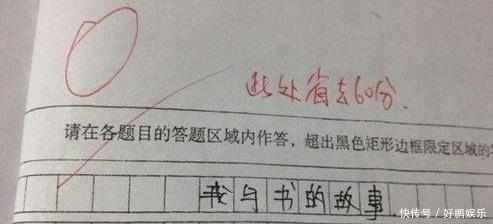 此处省去60分.
请在各题目的答题区域内作答，超出黑色矩形边框限定区域的答
我与书的故事
快传号／好鹏娱乐